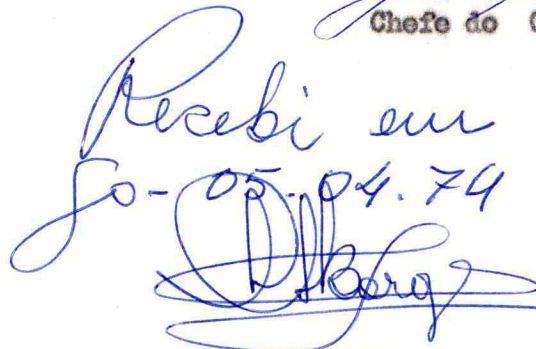 Chefe do
Recebi em
Go- 05.04.74